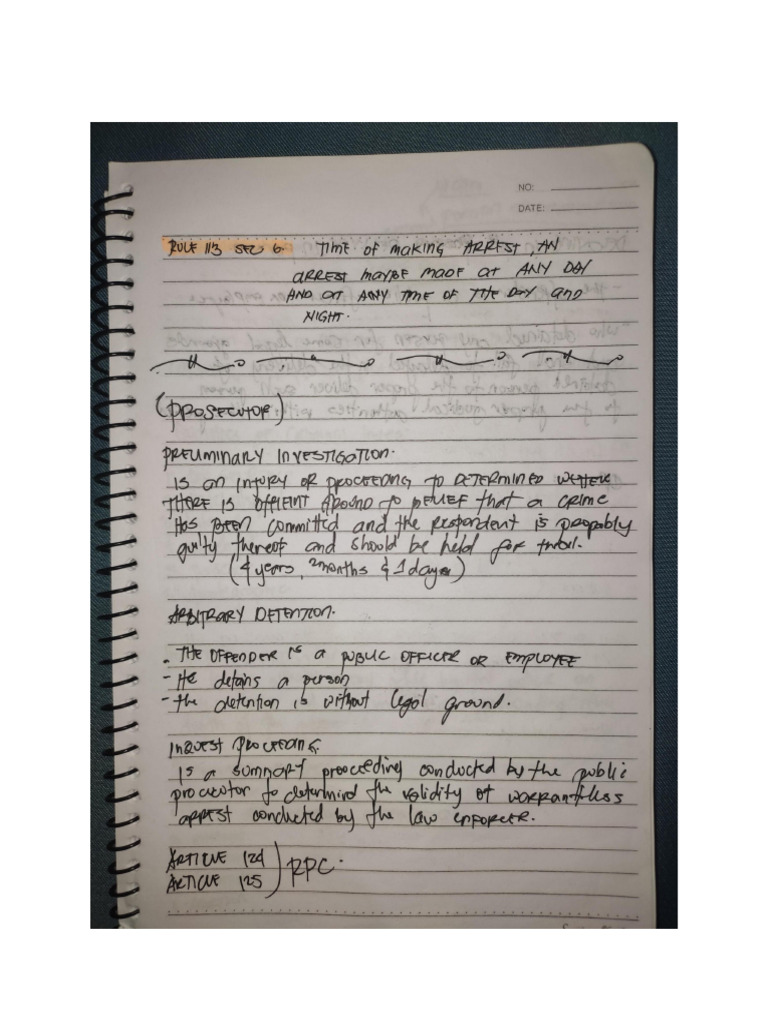 NO:
DATE:
RULE 113 SEC 6. TIME OF MAKING ARREST, AN
ARREST MAYBE MADE AT ANY DAY
AND AT ANY TIME OF THE DAY and
NIGHT.
(PROSECUTOR)
PRELIMINARY INVESTIGATION.
IS an INJURY OR PROCEEDING TO DETERMINED
THERE IS TO BELIEF that a CRIME
HAS BEEN committed and the Respondent is propably
guilty thereof and should be held for
(4 years, 2months & 1 day)
ARBITRARY DETENTION.
- THE OFFENDER IS a PUBLIC OFFICER OR EMPLOYEE
- He detains a person
- the detention is without legal ground.
INQUEST PROCEEDING.
IS a SUMMARY proceeding conducted by the public
to the validity of
ARREST conducted by the law ENFORCER.
ARTICLE 124
ARTICLE 125 ) RPC.